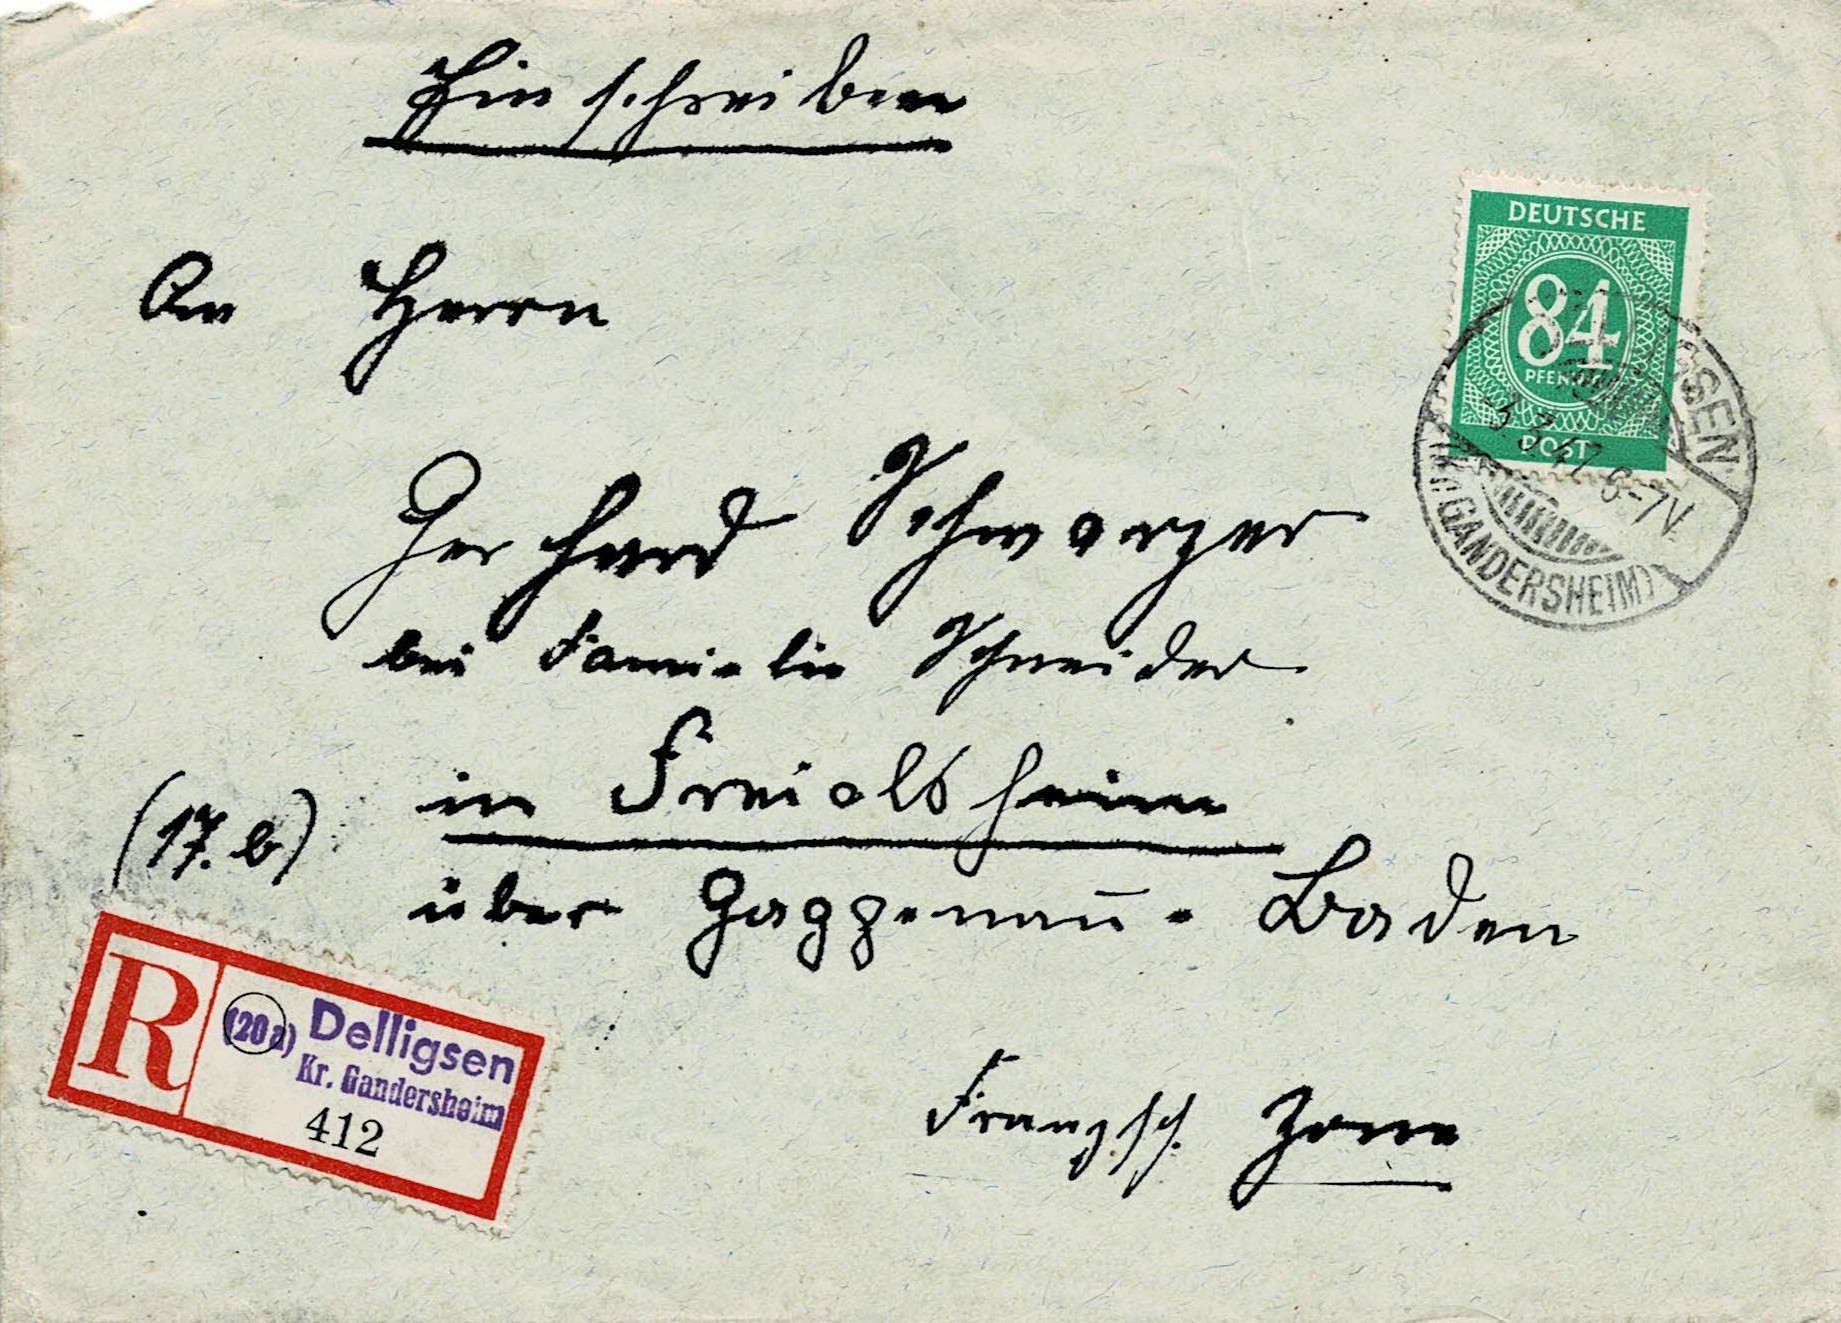 Einschreiben
An Herrn
Gerhard Schwarzer
bei Familie Schneider
in Freiolsheim
(17.b)
über Gaggenau-Baden
Französ. Zone
DEUTSCHE
84
PFENNIG
POST
3.3.47.6-7V.
(KR. GANDERSHEIM)
R
(20a) Delligsen
Kr. Gandersheim
412